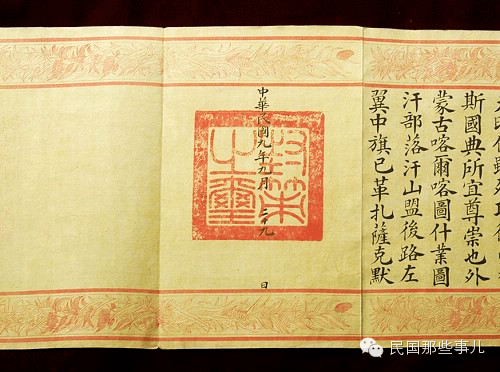 斯國典所宜尊崇也外
蒙古喀爾喀圖什業圖
汗部落汗山盟後路左
翼中旗已革扎薩克默
中華民國九年九月二十九日
封策之璽
民国那些事儿